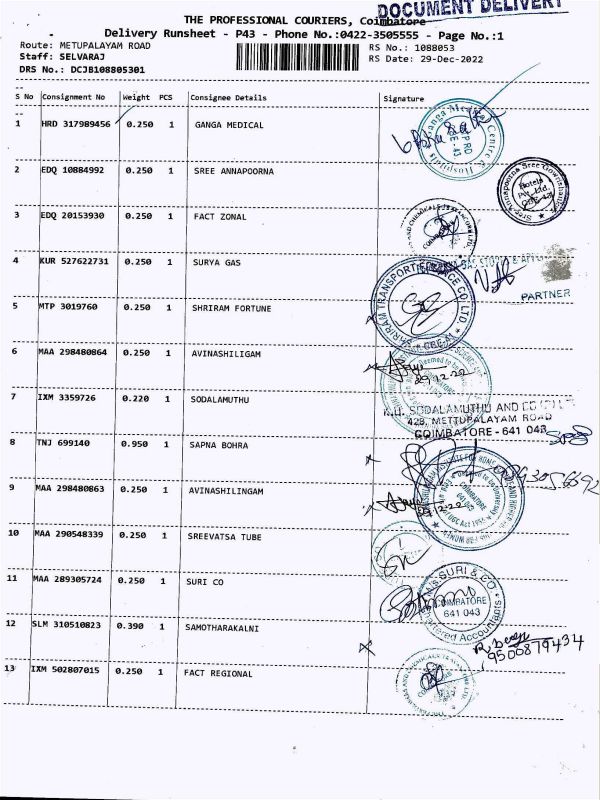 DOCUMENT DELIVERY
THE PROFESSIONAL COURIERS, Coimbatore
Delivery Runsheet - P43 - Phone No.:0422-3505555 - Page No.:1
Route: METUPALAYAM ROAD RS No.: 1088053
Staff: SELVARAJ RS Date: 29-Dec-2022
DRS No.: DCJB108805301
S No Consignment No Weight PCS Consignee Details Signature
1 HRD 317989456 0.250 1 GANGA MEDICAL
2 EDQ 10884992 0.250 1 SREE ANNAPOORNA
3 EDQ 20153930 0.250 1 FACT ZONAL
4 KUR 527622731 0.250 1 SURYA GAS
PARTNER
5 MTP 3019760 0.250 1 SHRIRAM FORTUNE
6 MAA 298480864 0.250 1 AVINASHILIGAM
29.12.22
7 IXM 3359726 0.220 1 SODALAMUTHU
SODALAMUTHU AND CO
428, METTUPALAYAM ROAD
COIMBATORE - 641 043
8 TNJ 699140 0.950 1 SAPNA BOHRA
9 MAA 298480863 0.250 1 AVINASHILINGAM
10 MAA 290548339 0.250 1 SREEVATSA TUBE
11 MAA 289305724 0.250 1 SURI CO
SURI & CO.
COIMBATORE
641 043
Chartered Accountants
12 SLM 310510823 0.390 1 SAMOTHARAKALNI
9500879434
13 IXM 502807015 0.250 1 FACT REGIONAL